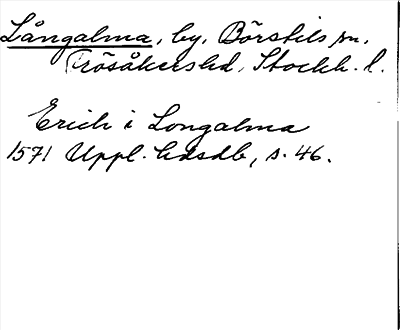 Långalma, by, Börstils sn.
Frösåkers hd, Stockh. l.
Erich i Longalma
1571 Uppl. hdsdb, s. 46.